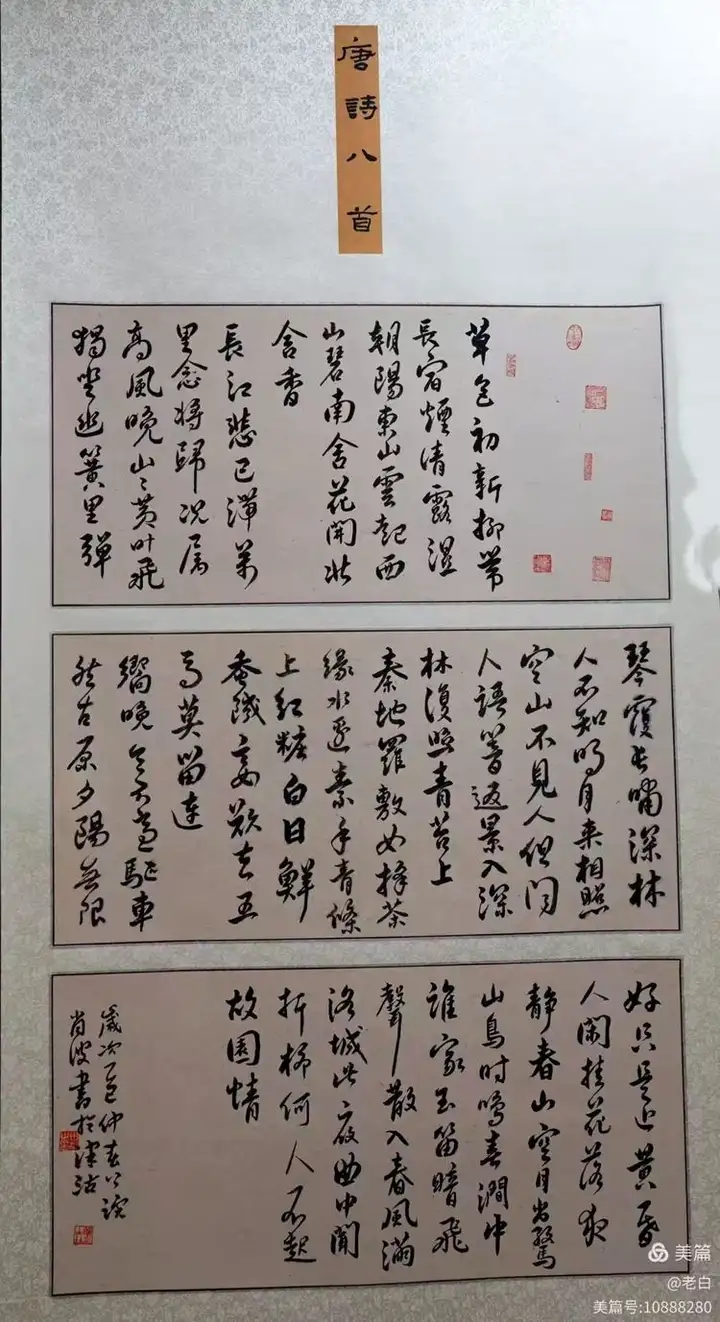 唐詩八首
草色初新柳帶
長宿煙清露濕
朝陽東山雲起西
山碧南舍花開北
舍香
長江悲已滯萬
里念將歸况属
高風晚山々黄叶飛
獨坐幽篁里彈
琴覆長嘯深林
人不知明月来相照
空山不見人但闻
人語響返景入深
林復照青苔上
秦地羅敷女採桒
緑水邊素手青條
上紅粧白日鮮
蚕饑妾欲去五
馬莫留連
嚮晚意不適駈車
登古原夕陽無限
好只是近黄昏
人闲桂花落夜
靜春山空月出驚
山鳥时鳴春澗中
誰家玉笛暗飛
聲散入春風滿
洛城此夜曲中聞
折柳何人不起
故園情
歲次乙巳仲春
肖波書於津沽
美篇
@老白
美篇号:10888280